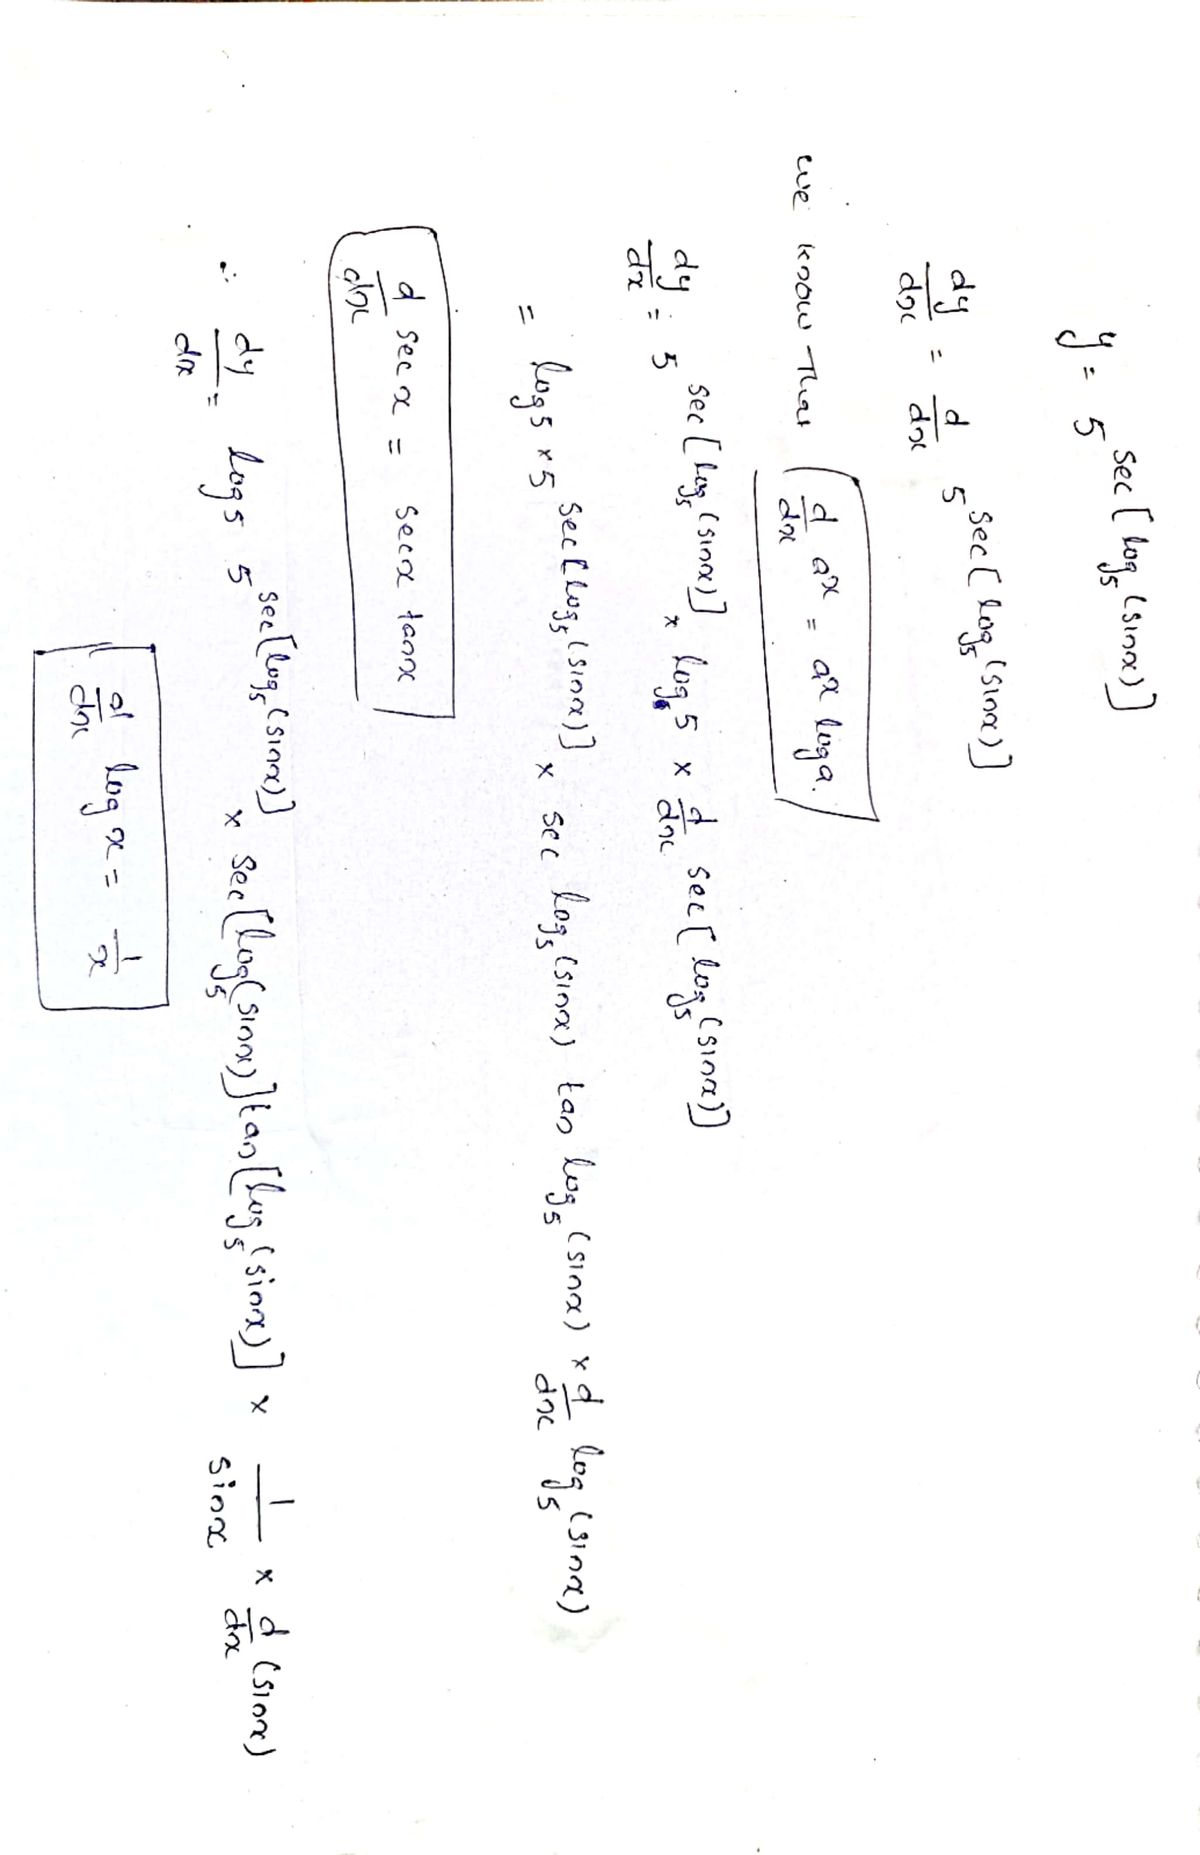 y = 5^sec[log₅(sinx)]
dy/dx = d/dx 5^sec[log₅(sinx)]
we know That d/dx aˣ = aˣ log a.
dy/dx = 5^sec[log₅(sinx)] × log 5 × d/dx sec[log₅(sinx)]
= log 5 × 5^sec[log₅(sinx)] × sec log₅(sinx) tan log₅(sinx) × d/dx log₅(sinx)
d/dx sec x = sec x tan x
∴ dy/dx = log 5 5^sec[log₅(sinx)] × sec[log₅(sinx)] tan[log₅(sinx)] × 1/sinx × d/dx (sinx)
d/dx log x = 1/x